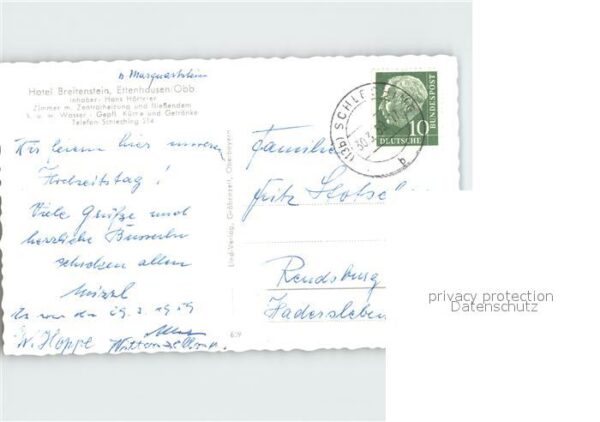 b Marquartstein
Hotel Breitenstein, Ettenhausen/Obb.
Inhaber: Hans Hörterer
Zimmer m. Zentralheizung und fließendem
k. u. w. Wasser · Gepfl. Küche und Getränke
Telefon Schleching 214
Wir feiern hier unseren
Hochzeitstag!
Viele Grüße und
herzliche Busserln
schicken allen
W. Hoppe
Lind-Verlag, Gröbenzell, Oberbayern
609
(13b) SCHLECHING
30.3.
b
10
DEUTSCHE
BUNDESPOST
Familie
Fritz
Rendsburg
Hadersleben
privacy protection
Datenschutz